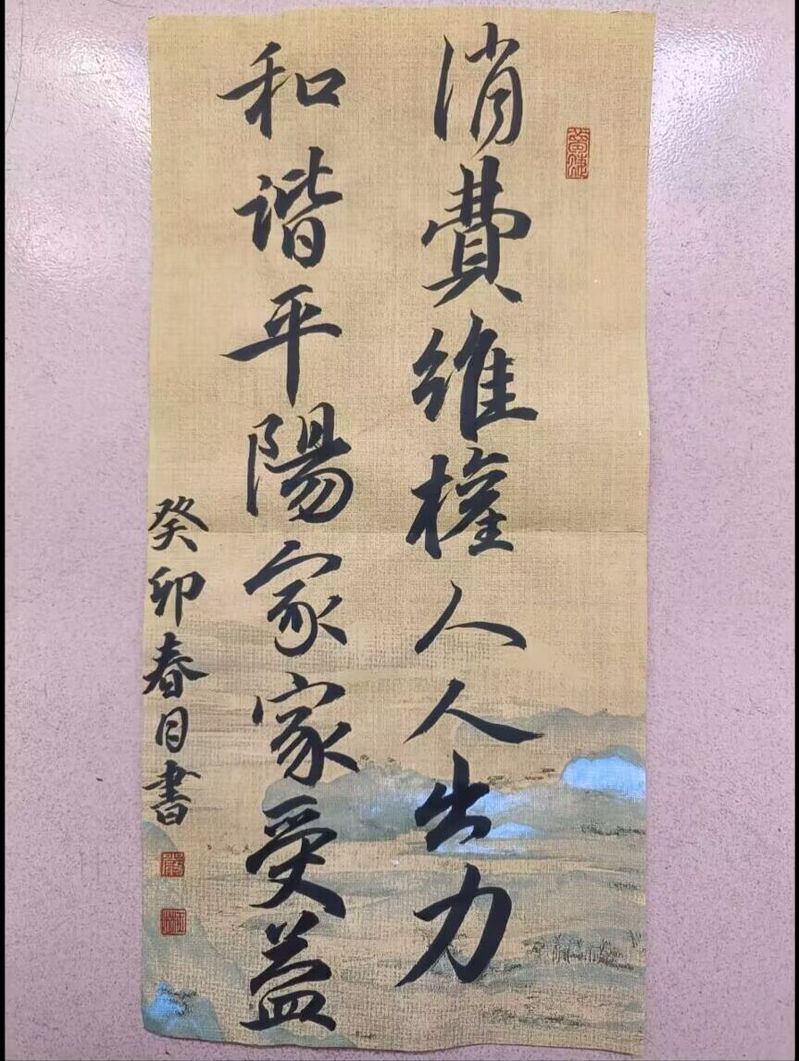 消費維權人人出力
和谐平陽家家受益
癸卯春月書